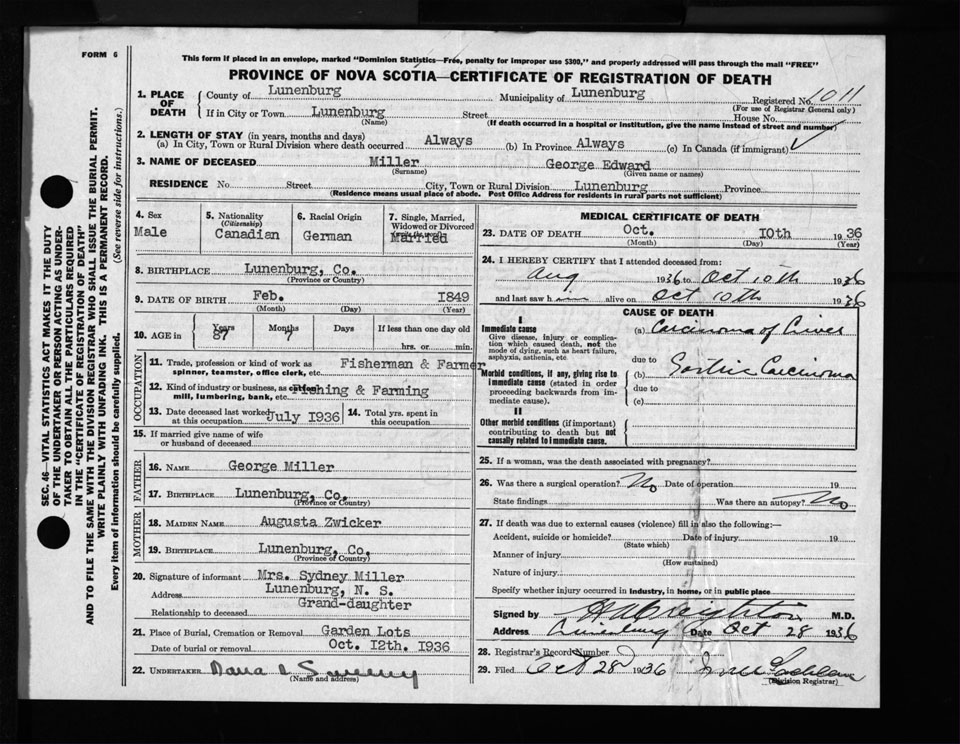 FORM 6
This form if placed in an envelope, marked "Dominion Statistics—Free, penalty for improper use $300," and properly addressed will pass through the mail "FREE"
PROVINCE OF NOVA SCOTIA—CERTIFICATE OF REGISTRATION OF DEATH
1. PLACE OF DEATH
County of Lunenburg Municipality of Lunenburg Registered No. 1011
(For use of Registrar General only)
If in City or Town Lunenburg Street House No.
(Name) (If death occurred in a hospital or institution, give the name instead of street and number)
2. LENGTH OF STAY (in years, months and days)
(a) In City, Town or Rural Division where death occurred Always (b) In Province Always (c) In Canada (if immigrant)
3. NAME OF DECEASED Miller George Edward
(Surname) (Given name or names)
RESIDENCE No. Street City, Town or Rural Division Lunenburg Province
(Residence means usual place of abode. Post Office Address for residents in rural parts not sufficient)
4. Sex
Male
5. Nationality
(Citizenship)
Canadian
6. Racial Origin
German
7. Single, Married, Widowed or Divorced
Married
8. BIRTHPLACE Lunenburg, Co.
(Province or Country)
9. DATE OF BIRTH Feb. 1849
(Month) (Day) (Year)
10. AGE in Years Months Days If less than one day old
87 7 hrs. or min.
OCCUPATION
11. Trade, profession or kind of work as spinner, teamster, office clerk, etc. Fisherman & Farmer
12. Kind of industry or business, as cotton mill, lumbering, bank, etc. Fishing & Farming
13. Date deceased last worked at this occupation July 1936
14. Total yrs. spent in this occupation
15. If married give name of wife or husband of deceased
FATHER
16. NAME George Miller
17. BIRTHPLACE Lunenburg, Co.
(Province or Country)
MOTHER
18. MAIDEN NAME Augusta Zwicker
19. BIRTHPLACE Lunenburg, Co.
(Province or Country)
20. Signature of informant Mrs. Sydney Miller
Address Lunenburg, N. S.
Relationship to deceased Grand-daughter
21. Place of Burial, Cremation or Removal Garden Lots
Date of burial or removal Oct. 12th. 1936
22. UNDERTAKER
(Name and address)
MEDICAL CERTIFICATE OF DEATH
23. DATE OF DEATH Oct. 10th 1936
(Month) (Day) (Year)
24. I HEREBY CERTIFY that I attended deceased from:
Aug 1936 to Oct 10th 1936
and last saw him alive on Oct 10th 1936
CAUSE OF DEATH
I
Immediate cause
Give disease, injury or complication which caused death, not the mode of dying, such as heart failure, asphyxia, asthenia, etc
(a) Carcinoma of Liver
due to
Morbid conditions, if any, giving rise to immediate cause (stated in order proceeding backwards from immediate cause).
(b) Gastric Carcinoma
due to
(c)
II
Other morbid conditions (if important) contributing to death but not causally related to immediate cause.
25. If a woman, was the death associated with pregnancy?
26. Was there a surgical operation? No Date of operation 19
State findings Was there an autopsy? No
27. If death was due to external causes (violence) fill in also the following:—
Accident, suicide or homicide? Date of injury 19
(State which)
Manner of injury
(How sustained)
Nature of injury
Specify whether injury occurred in industry, in home, or in public place
Signed by H A Creighton M.D.
Address Lunenburg Date Oct 28 1936
28. Registrar's Record Number
29. Filed Oct 28 1936
(Division Registrar)
SEC. 46—VITAL STATISTICS ACT MAKES IT THE DUTY OF THE UNDERTAKER OR PERSON ACTING AS UNDERTAKER TO OBTAIN ALL THE PARTICULARS REQUIRED IN THE "CERTIFICATE OF REGISTRATION OF DEATH" AND TO FILE THE SAME WITH THE DIVISION REGISTRAR WHO SHALL ISSUE THE BURIAL PERMIT.
WRITE PLAINLY WITH UNFADING INK. THIS IS A PERMANENT RECORD.
Every item of information should be carefully supplied. (See reverse side for instructions.)